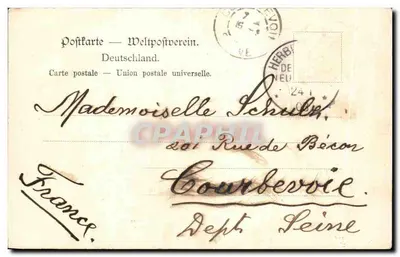 Postkarte — Weltpostverein.
Deutschland.
Carte postale — Union postale universelle.
HERB
DE
NEU
24 1
Mademoiselle Schulz.
CPAPHIL
201 Rue de Bécon
Courbevoie
Dept Seine
France.